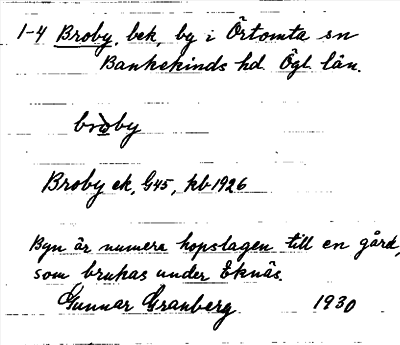 1-4 Broby, bek, by i Örtomta sn
Bankekinds hd. Ögl. län.
bròby
Broby ek, G45, kb 1926
Byn är numera hopslagen till en gård,
som brukas under Eknäs.
Gunnar Granberg 1930